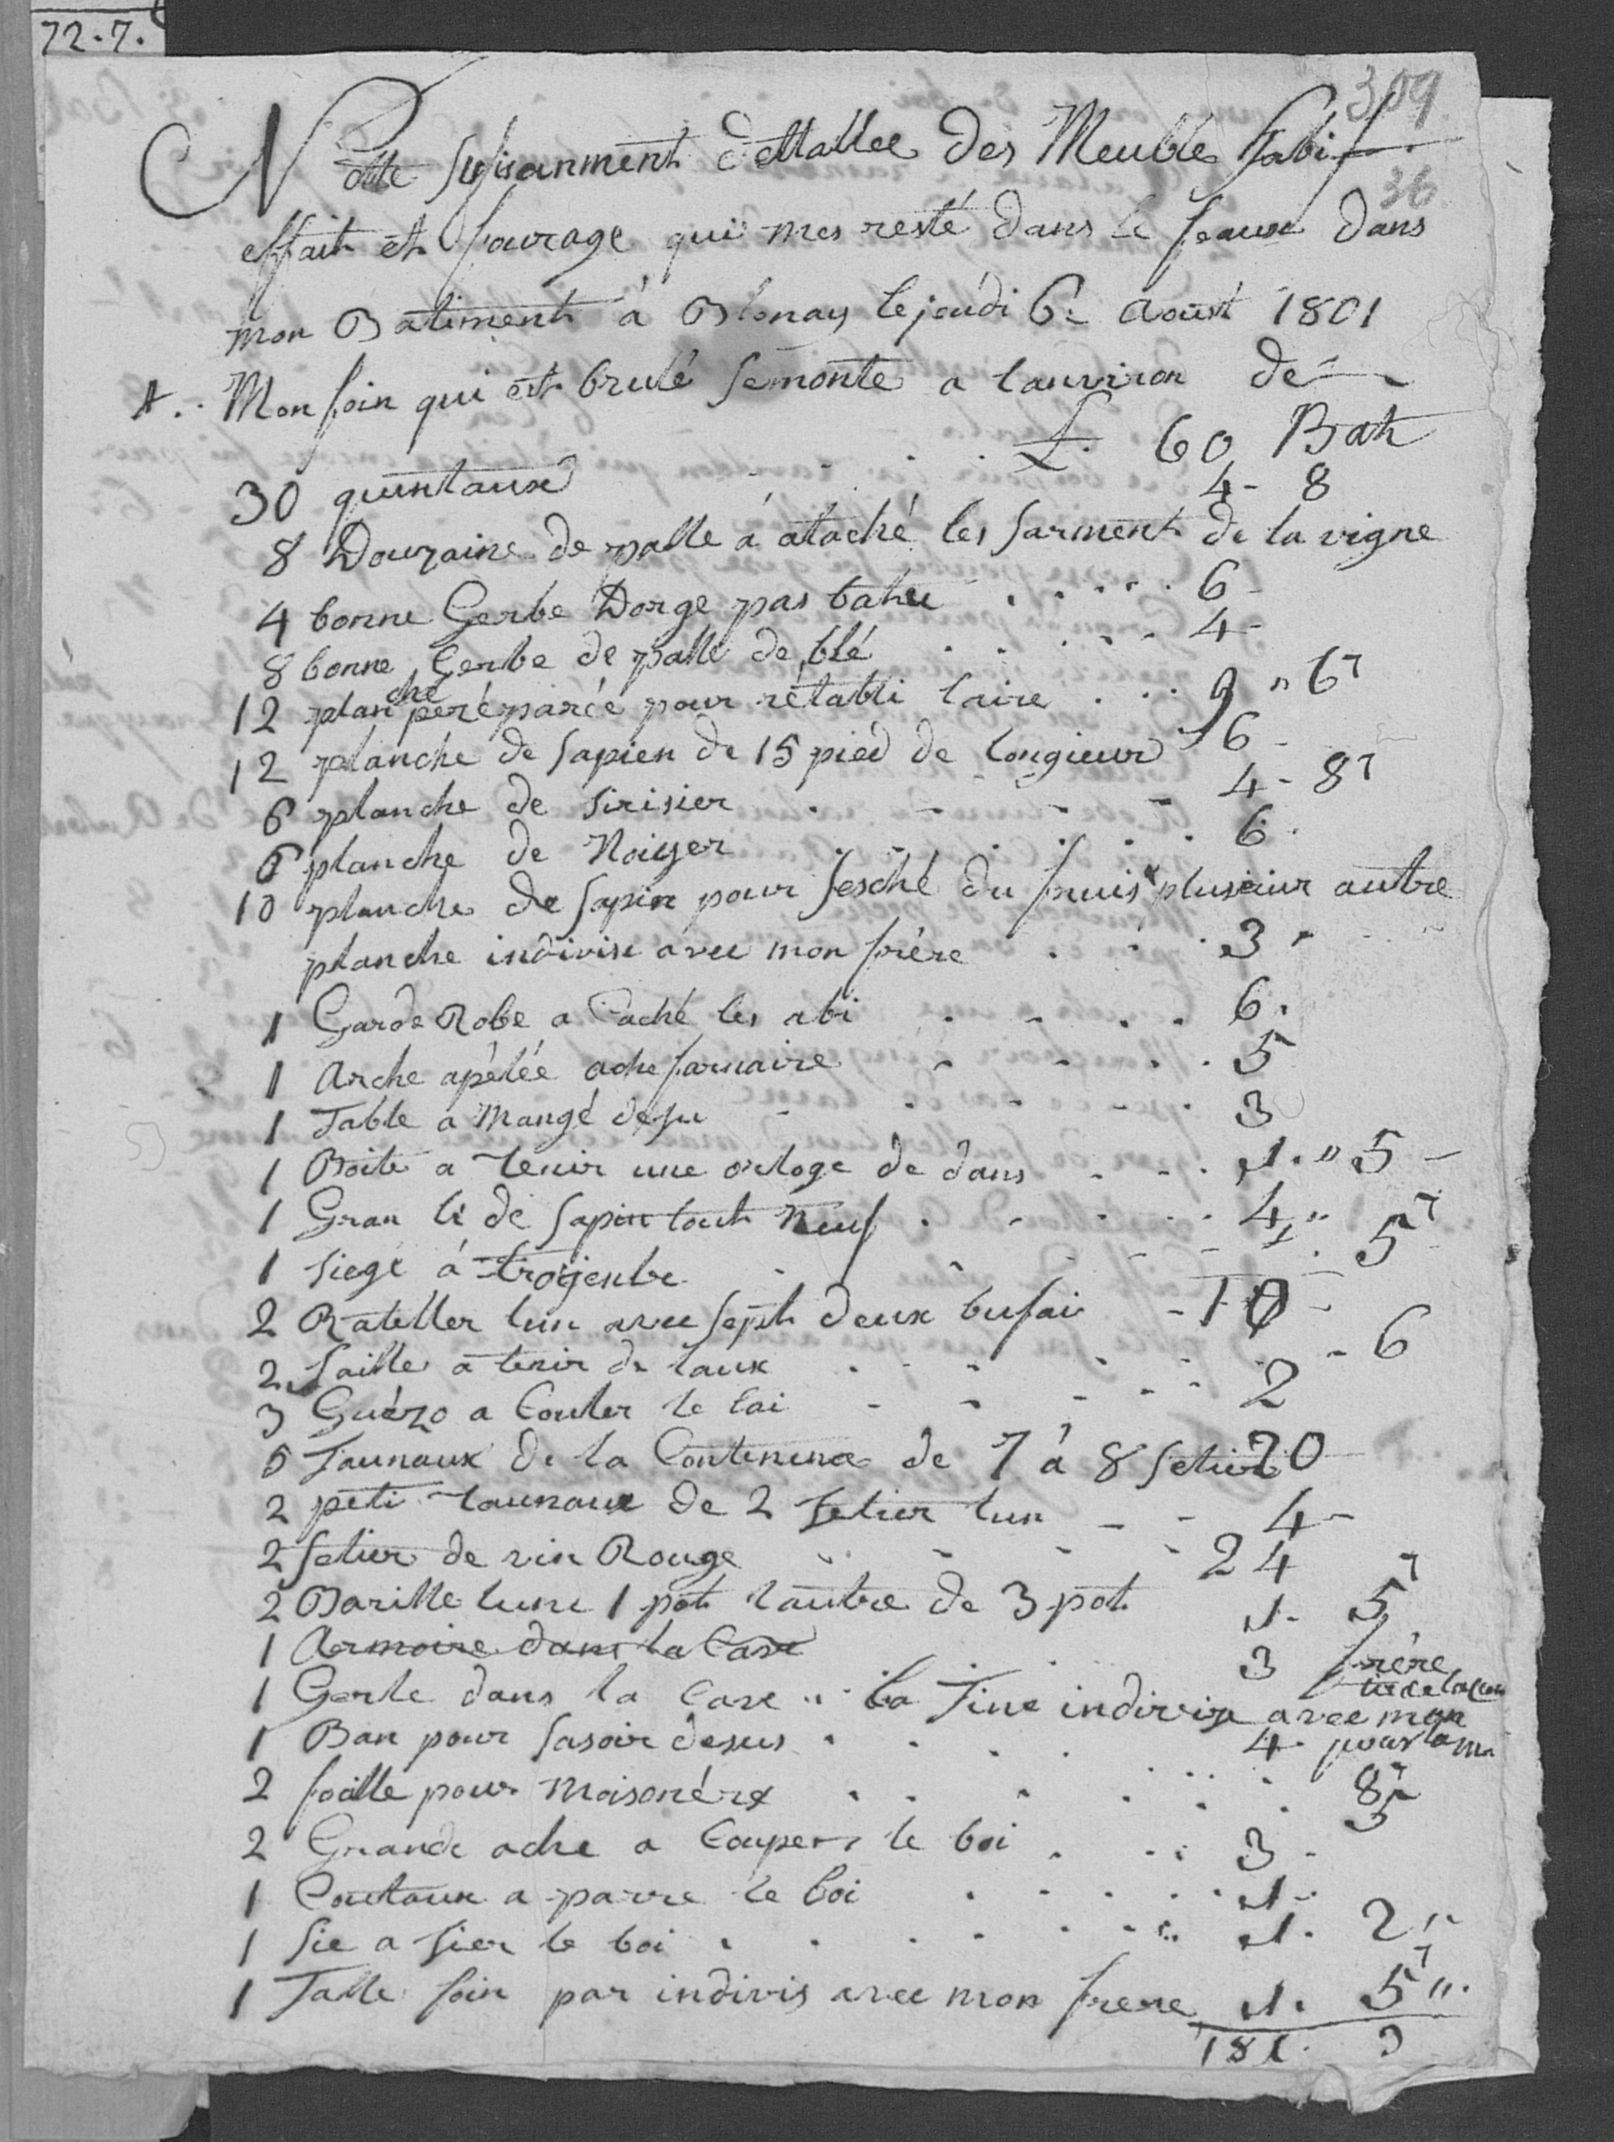 72.7.
309
36
Notte sufisanment dettallee des Meuble habif
effait et fourage qui mes resté dans le feaux dans
mon Batiment à Blonay le jeudi 6e Aoust 1801
A.. Mon foin qui est brulé semonte a lanviron de
L. 60 Bat
30 quintaux
4 - 8
8 Douzaine de palle à ataché les sarment de la vigne
4 bonne Gerbe Dorge pas batu . . . . . 6 -
8 bonne Gerbe de palle de blé . . . . 4 -
12 planche peréparée pour rétabli laire . . . 9 " 6
12 planche de sapien de 15 pied de longieur 16 -
6 planche de sirisier . - - - 4 - 8
6 planche de Noiyer . - . . . . 6 .
10 planche de sapin pour sesché du fruis & plusieur autre
planche indivise avec mon frère . . . 3 "
1 Garde Robe a Caché les abi . - . . 6 .
1 Arche apélée ache farnaire - - . . 5
1 Table a Mangé desu - . - - . 3
1 Boite a tenir une orloge de dans - - . 1 . " 5 -
1 Gran li de sapin tout Neuf . - . . . 4 "
1 siege à troyentre . - - - . 5
2 Rateller lun avec sept deux bufai - 10 -
2 saille a tenir de laux . - - . . - 6
3 Guézo a Couler le lai - - - - - 2
5 Taunaux de la Contenence de 7 à 8 setier 20
2 peti taunaux de 2 setier lun - - 4 -
2 setier de vin Rouge . - - . 24
2 Barille lune 1 pot lautre de 3 pot 1 - 5
1 Armoire dans la Cave . . 3 frère
1 Gerle dans la Cave .. la Tine indivise avec mon
1 Ban pour sasoir desus . . . . 4 .
2 foille pour Moisonére . . . . . . 8
5
2 Grande ache a Couper le boi . . . 3 -
1 Coutaux a parre le boi . . . . . 1 -
1 sie a sier le boi . . . - - .. 1 . 2 "
1 Talle foin par indivis avec mon frere 1 . 5 "
181 . 3